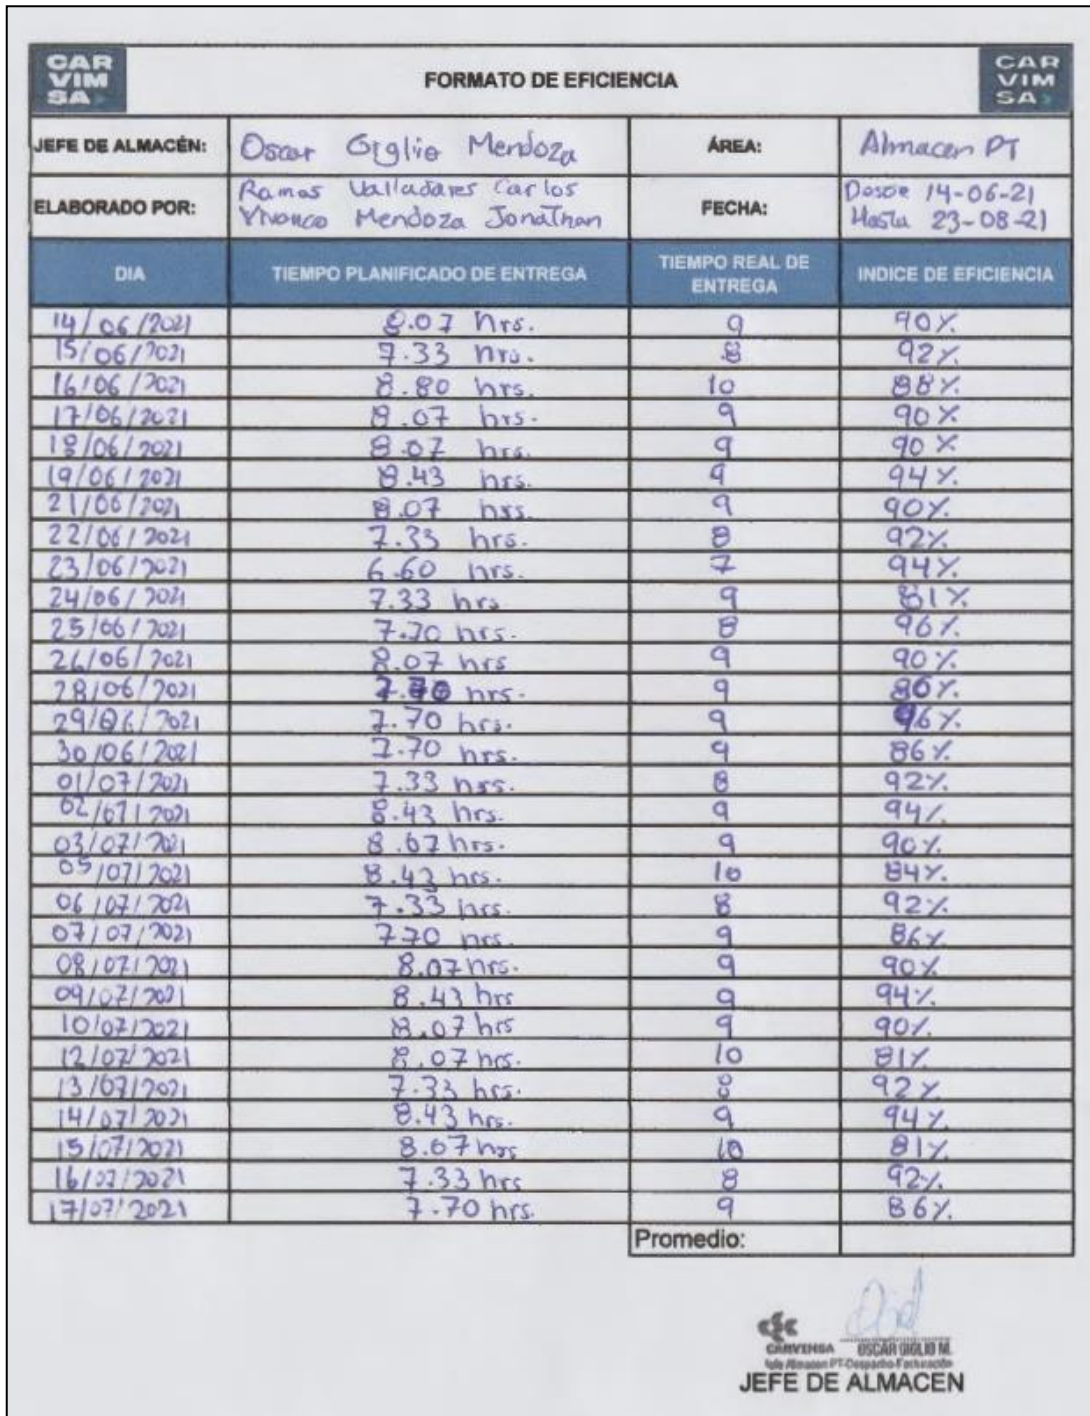 CAR
VIM
SA
FORMATO DE EFICIENCIA
CAR
VIM
SA
JEFE DE ALMACÉN: Oscar Giglio Mendoza ÁREA: Almacen PT
ELABORADO POR: Ramos Valladares Carlos
Vivanco Mendoza Jonathan FECHA: Desde 14-06-21
Hasta 23-08-21
DIA TIEMPO PLANIFICADO DE ENTREGA TIEMPO REAL DE ENTREGA INDICE DE EFICIENCIA
14/06/2021 8.07 hrs. 9 90%
15/06/2021 7.33 hrs. 8 92%
16/06/2021 8.80 hrs. 10 88%
17/06/2021 8.07 hrs. 9 90%
18/06/2021 8.07 hrs. 9 90%
19/06/2021 8.43 hrs. 9 94%
21/06/2021 8.07 hrs. 9 90%
22/06/2021 7.33 hrs. 8 92%
23/06/2021 6.60 hrs. 7 94%
24/06/2021 7.33 hrs 9 81%
25/06/2021 7.70 hrs. 8 96%
26/06/2021 8.07 hrs 9 90%
28/06/2021 7.70 hrs. 9 86%
29/06/2021 7.70 hrs. 9 96%
30/06/2021 7.70 hrs. 9 86%
01/07/2021 7.33 hrs. 8 92%
02/07/2021 8.43 hrs. 9 94%
03/07/2021 8.07 hrs. 9 90%
05/07/2021 8.43 hrs. 10 84%
06/07/2021 7.33 hrs. 8 92%
07/07/2021 7.70 hrs. 9 86%
08/07/2021 8.07 hrs. 9 90%
09/07/2021 8.43 hrs 9 94%
10/07/2021 8.07 hrs 9 90%
12/07/2021 8.07 hrs. 10 81%
13/07/2021 7.33 hrs. 8 92%
14/07/2021 8.43 hrs. 9 94%
15/07/2021 8.07 hrs 10 81%
16/07/2021 7.33 hrs 8 92%
17/07/2021 7.70 hrs. 9 86%
Promedio:
CARVIMSA OSCAR GIGLIO M.
Jefe Almacen PT-Despacho-Facturación
JEFE DE ALMACEN